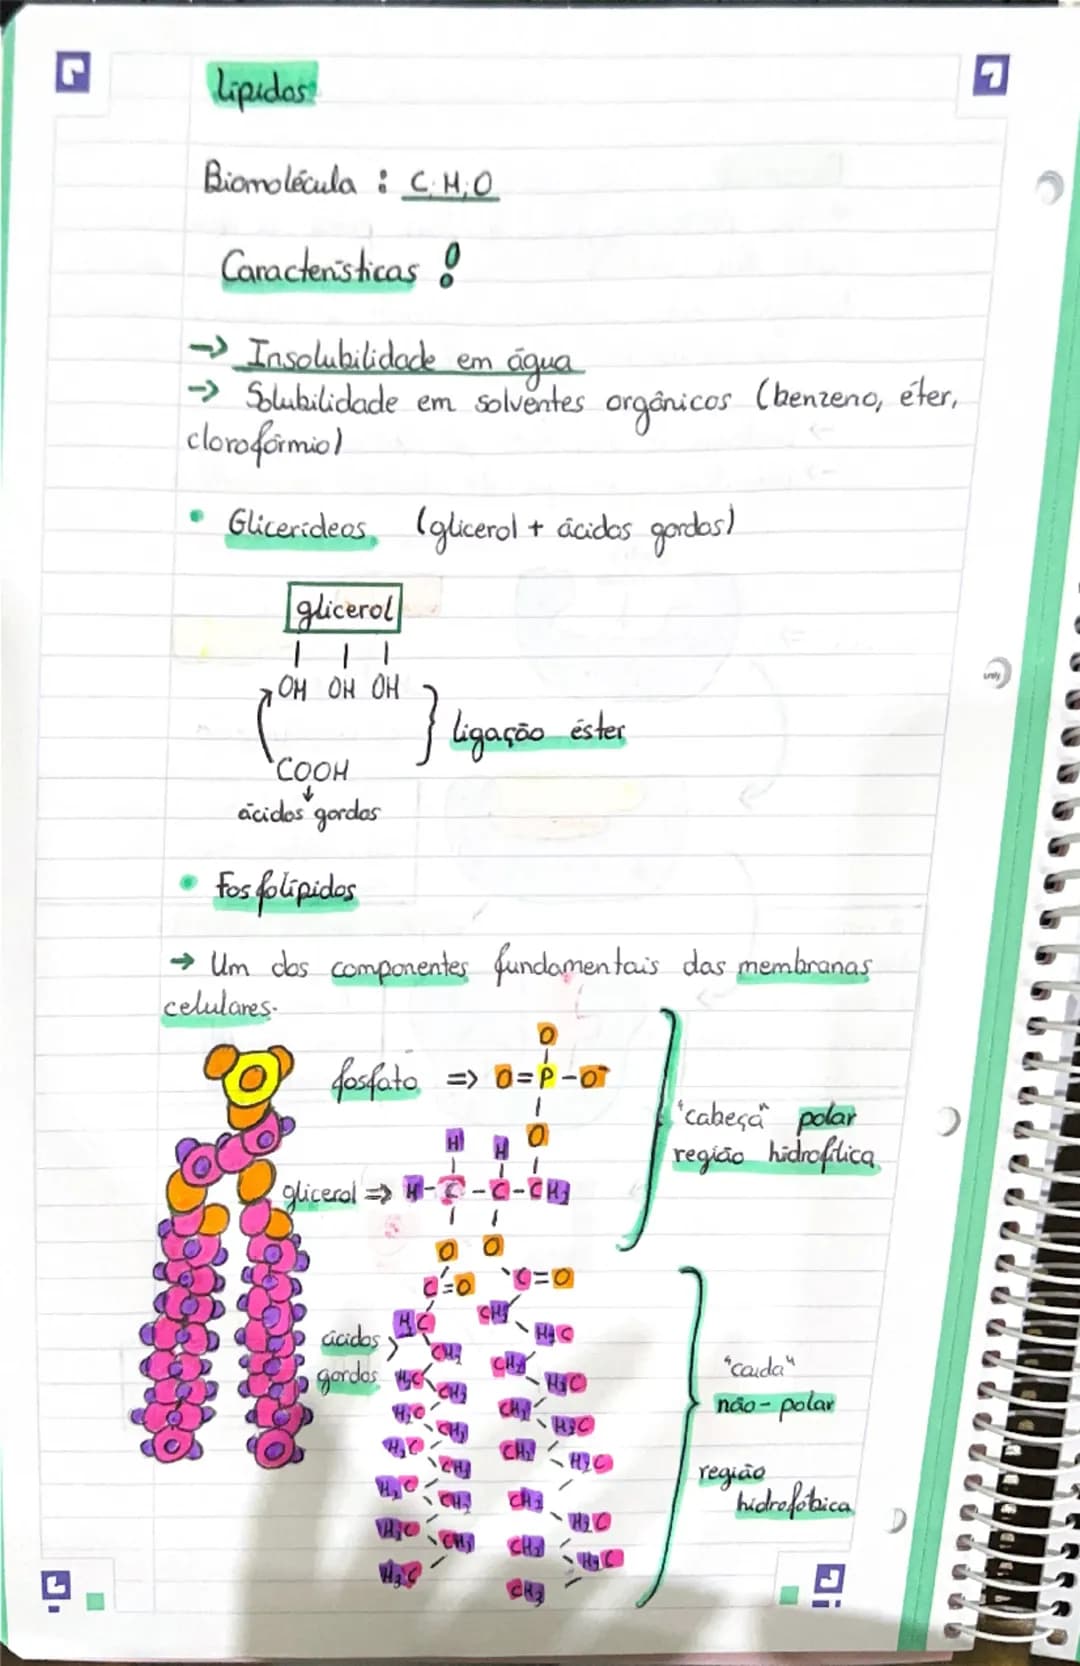 Lípidos
Biomolécula : C,H,O
Características !
→ Insolubilidade em água
→ Solubilidade em solventes orgânicos (benzeno, éter,
clorofórmio)
• Glicerídeos (glicerol + ácidos gordos)
glicerol
OH OH OH
ligação éster
COOH
ácidos gordos
• Fosfolípidos
→ Um dos componentes fundamentais das membranas
celulares.
O
fosfato => O=P-O⁻
"cabeça" polar
H H O
região hidrofílica
glicerol => H-C-C-CH₂
O O
C=O C=O
H₂C CH₂
ácidos
gordos
H₂C
CH₂ CH₂
"cauda"
H₂C H₂C
CH₂ CH₂
não-polar
H₂C H₂C
CH₂ CH₂
H₂C H₂C
CH₂
região
hidrofóbica
H₂C CH₂ CH₂
H₂C H₂C
CH₂ CH₂
H₃C H₂C
CH₃
unity